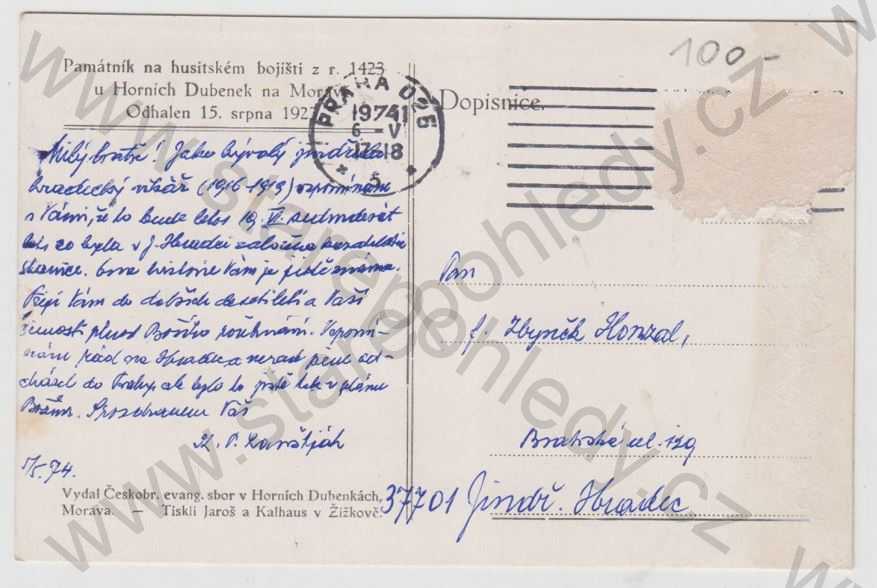 100 -
Památník na husitském bojišti z r. 1423
u Horních Dubenek na Moravě
Odhalen 15. srpna 192
PRAHA 025
1974
6 - V
17-18
5
Dopisnice.
Milý bratře! Jako bývalý jindřicho
hradecký vikář (1916-1919) vzpomínám
s Vámi, že to bude letos 19. VI. padesát
let co byla v J. Hradci založena kazatelská
stanice. Její historie Vám je jistě známa.
Přeji Vám do dalších desetiletí a Vaší
činnosti plnost Božího požehnání. Vzpomí-
nám rád na Hradec a nerad jsem od-
cházel do Prahy, ale bylo to jistě tak v plánu
Božím. S pozdravem Váš
5/5. 74.
Pan
f. Zbyněk Honzal,
Bratrská ul. 129
37701 Jindř. Hradec
Vydal Českobr. evang. sbor v Horních Dubenkách,
Morava. — Tiskli Jaroš a Kalhaus v Žižkově.
www.starepohledy.cz